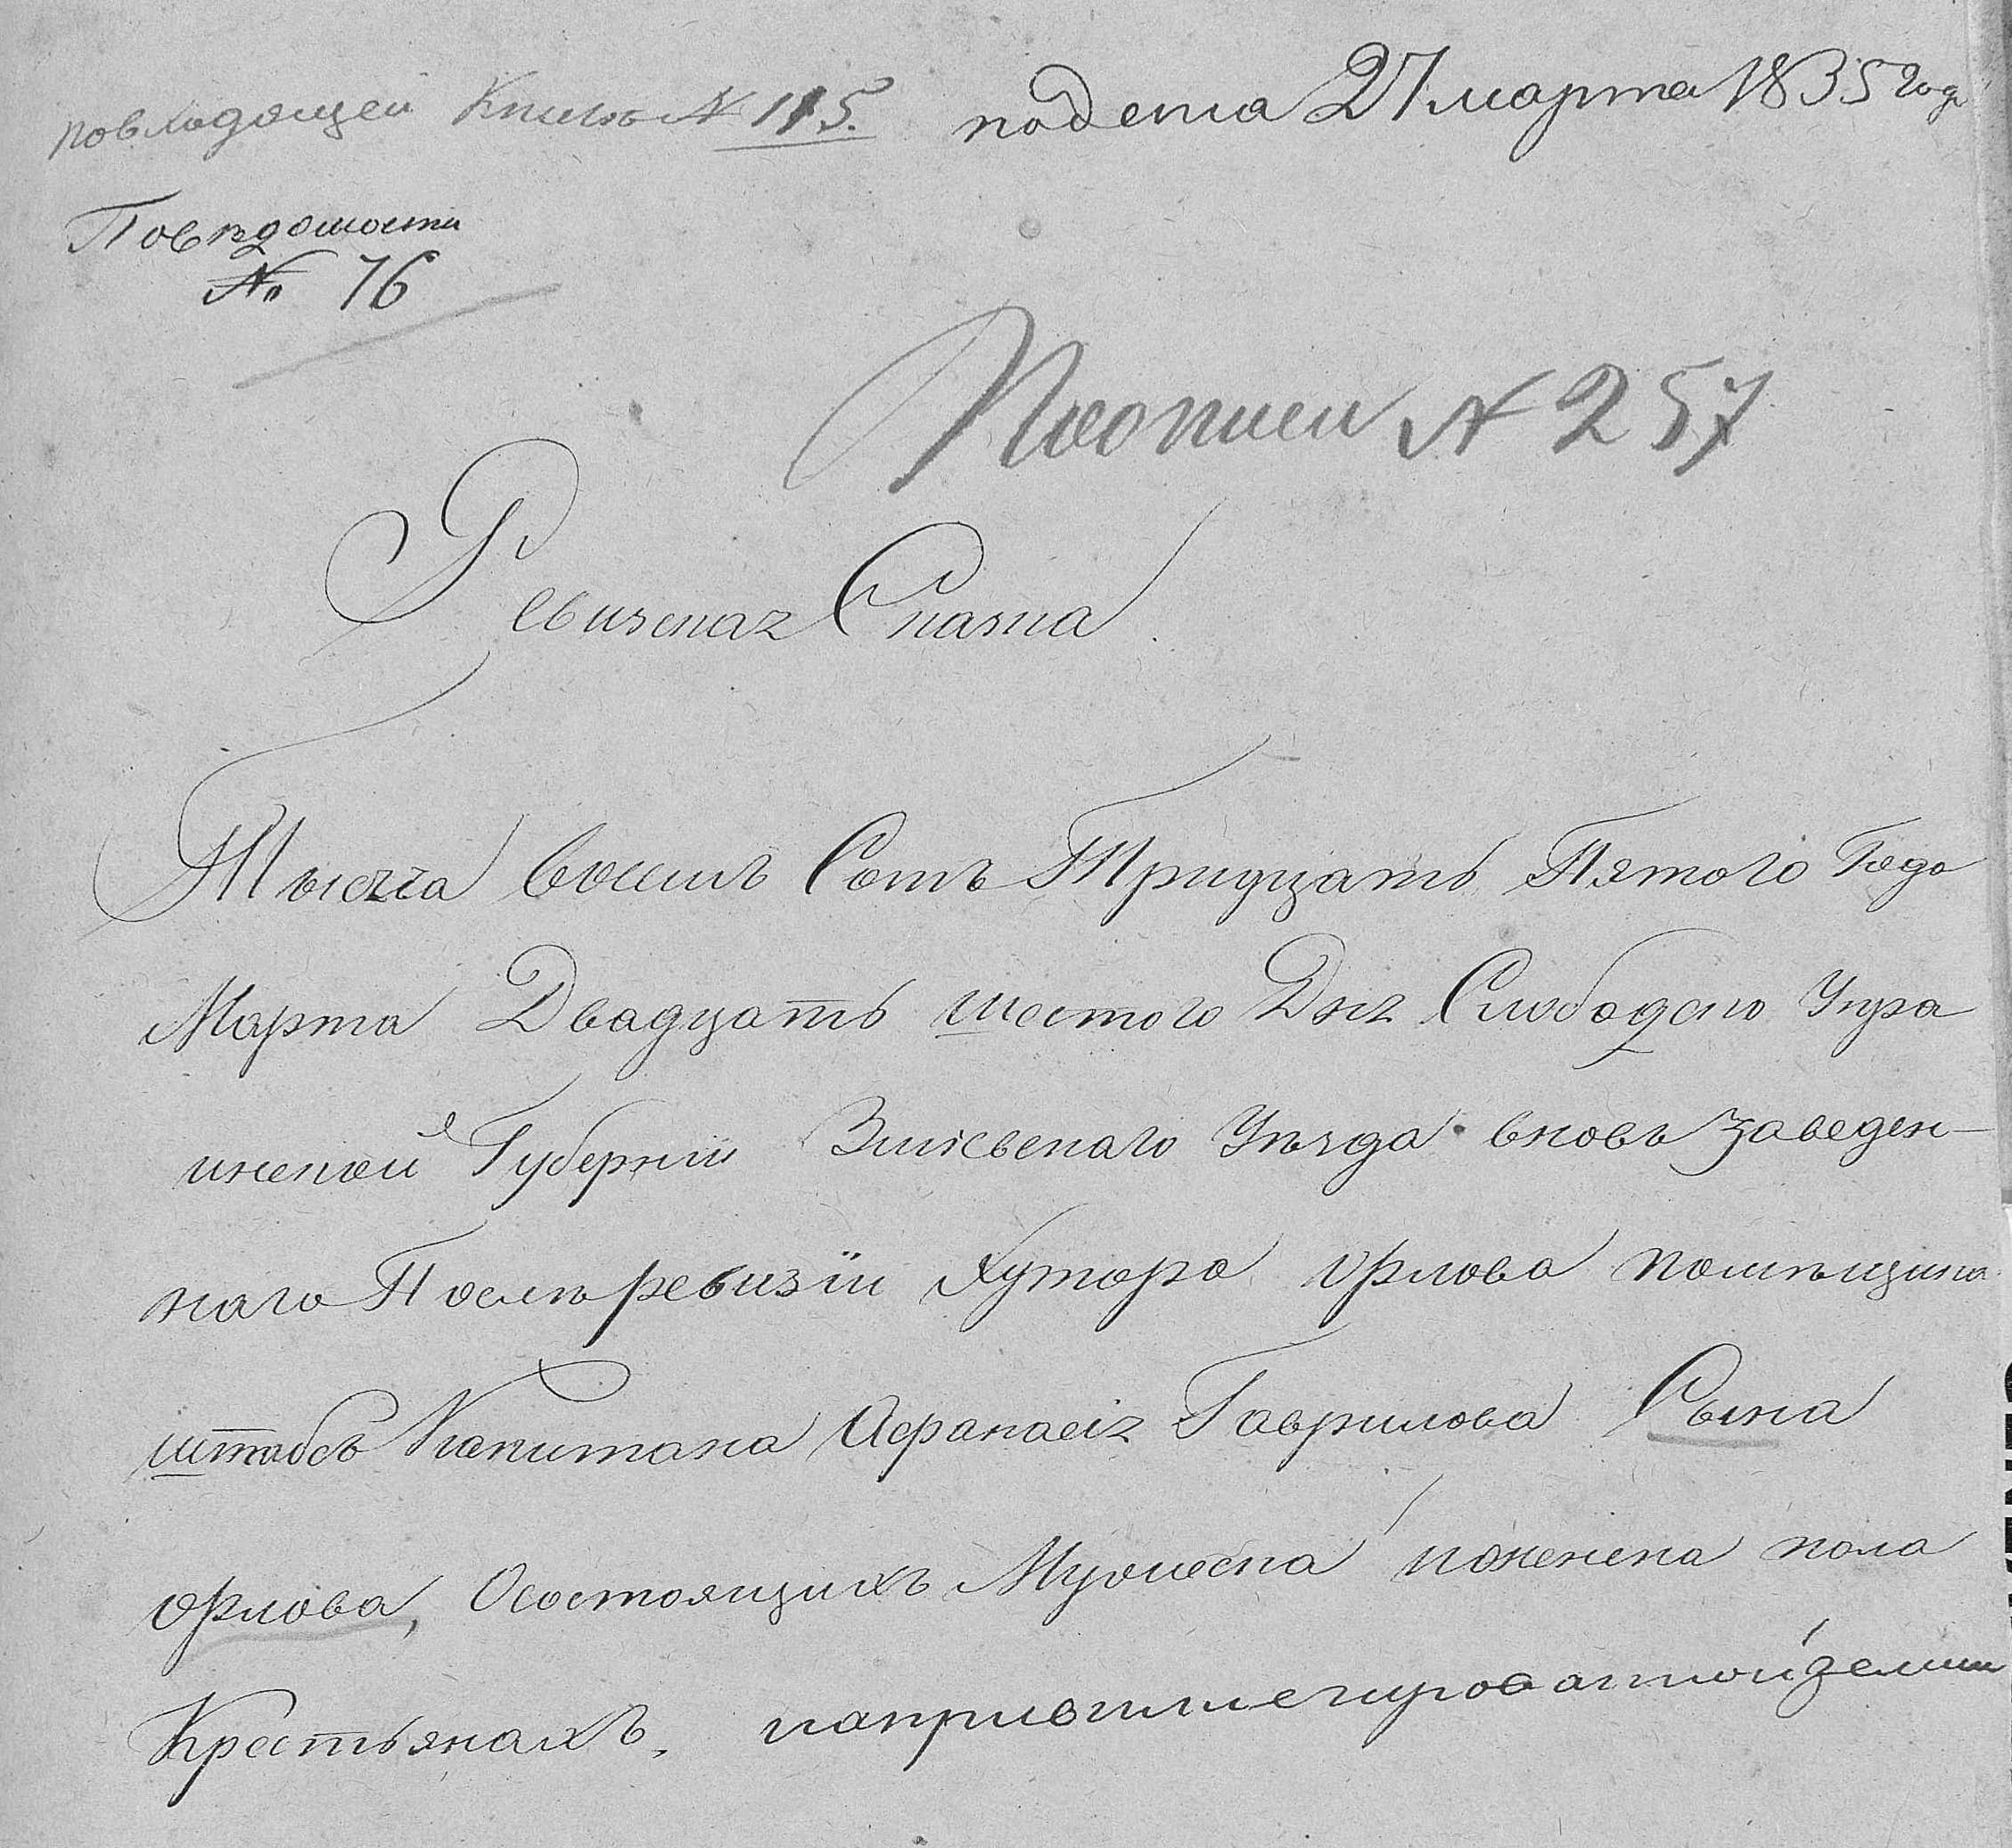 повходящей Книге № 115. подета 27 марта 1835 года
Поведомости
№ 76
По описи № 257
Ревизская Сказка
Тысяча восемь Сотъ Тридцать Пятого Года
Марта Двадцать шестого Дня Слободско Укра
инской Губерніи Зміевскаго Уѣзда вновь заведен-
наго Послѣ ревизіи Хутора Орлова помѣщика
штабсъ Капитана Афанасія Гаврилова Сына
Орлова, Осостоящихъ Мужеска иженска пола
Крестьянахъ, напривиллегированной земли